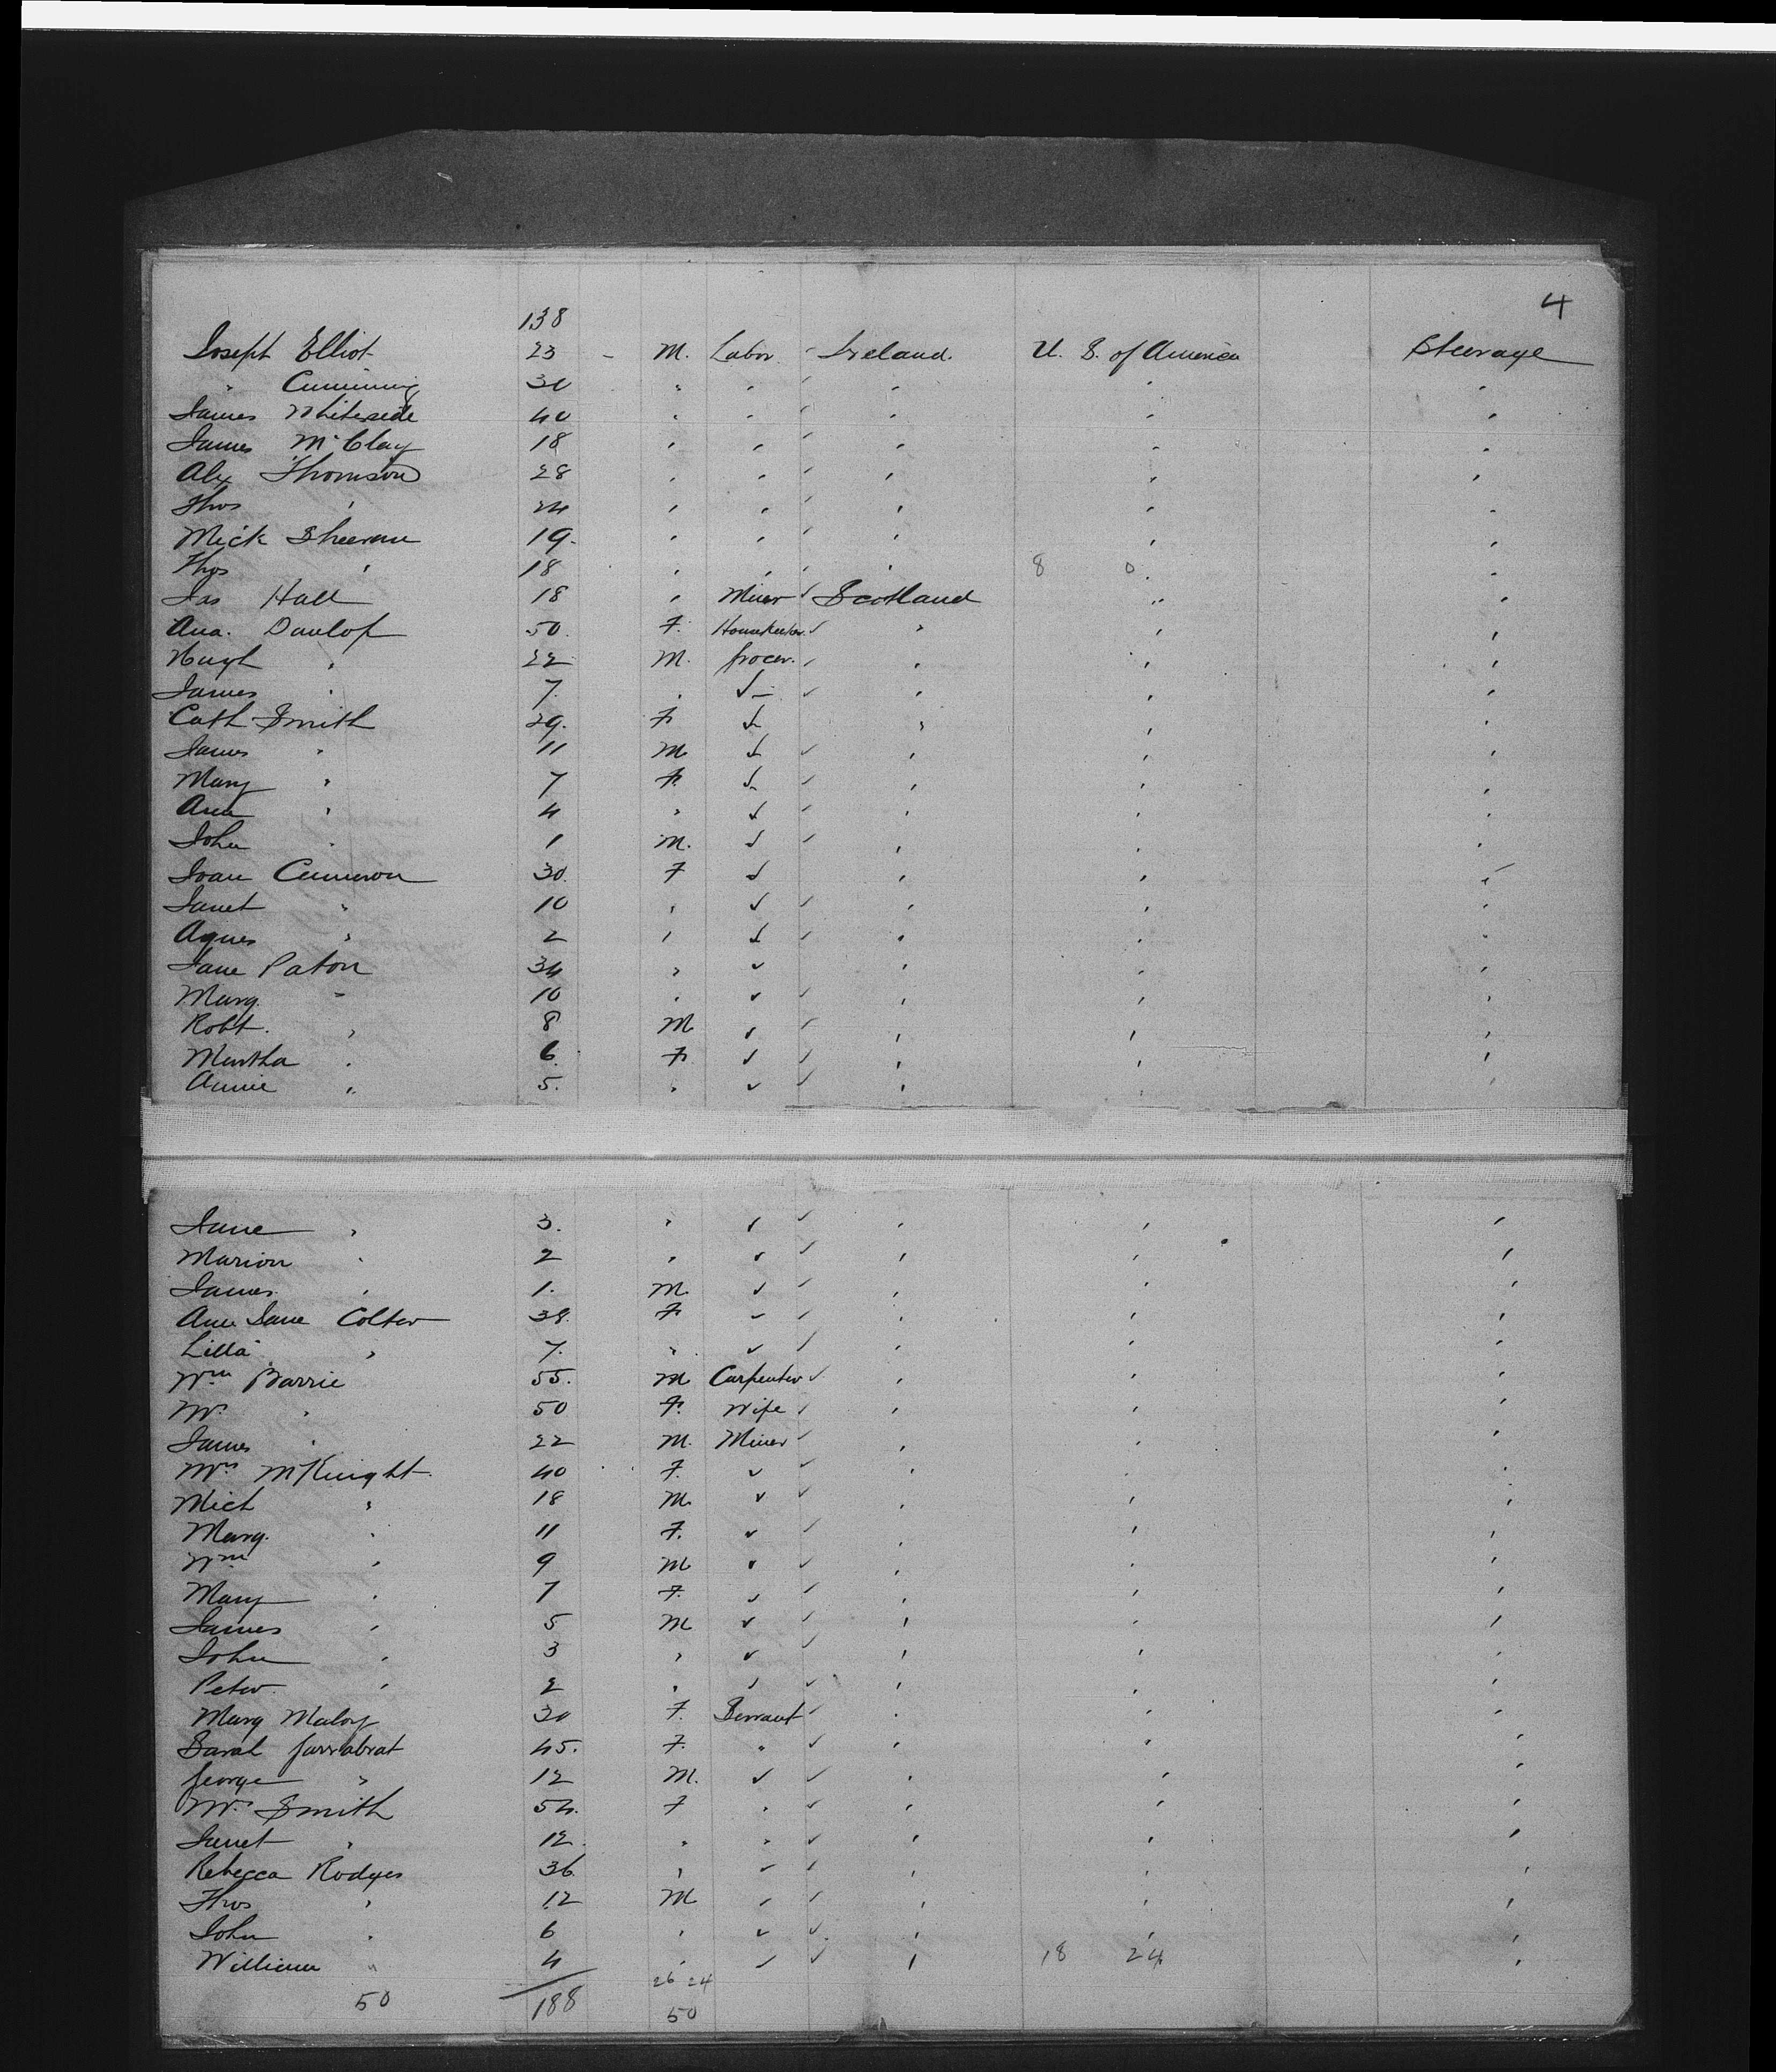 4
138
Joseph Elliot 23 - M. Labor Ireland. U. S. of America Steerage
" Cumming 30 " " " " "
James Whiteside 40 " " " " "
James McClay 18 " " " " "
Alex Thomson 28 " " " " "
Thos " 24 " " " " "
Mick Sheeran 19. " " " " "
Thos " 18 " " " 8 0 "
Jas Hall 18 " Miner Scotland " "
Ana. Dunlop 50. F. Housekeeper " " "
Hugh " 22 M. Grocer. " " "
James " 7. " " " "
Cath Smith 29. F " " "
James " 11 M " " "
Mary " 7 F. " " "
Ann " 4 " " " "
John " 1 M. " " "
Joan Cameron 30. F " " "
Janet " 10 " " " "
Agnes " 2 " " " "
Jane Paton 34 " " " "
Marg. " 10 " " " "
Robt. " 8 M " " "
Martha " 6. F " " "
Annie " 5. " " " "
Jane " 3. " " " "
Marion " 2 " " " "
James " 1. M. " " "
Ann Jane Colter 38. F " " "
Lilla " 7. " " " "
Wm Barrie 55. M Carpenter " " "
Mrs " 50 F. Wife " " "
James " 22 M. Miner " " "
Mrs McKnight 40 F. " " "
Mich " 18 M. " " "
Marg. " 11 F. " " "
Wm " 9 M " " "
Mary " 7 F. " " "
James " 5 M " " "
John " 3 " " " "
Peter " 2 " " " "
Marg Maloy 30 F. Servant " " "
Sarah Garrabrat 45. F. " " " "
George " 12 M. " " "
Mrs Smith 54. F " " " "
Janet " 12. " " " " "
Rebecca Rodgers 36. " " " "
Thos " 12 M " " "
John " 6 " " " "
William " 4 " " 18 24 "
26 24
50 188 50